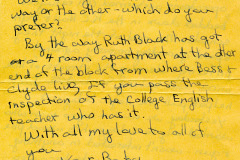 way or the other - which do you
prefer?
By the way Ruth Black has got
a 4 room apartment at the other
end of the block from where Bess &
Clyde live, if you pass the
inspection of the College English
teacher who has it.
With all my love to all of
you